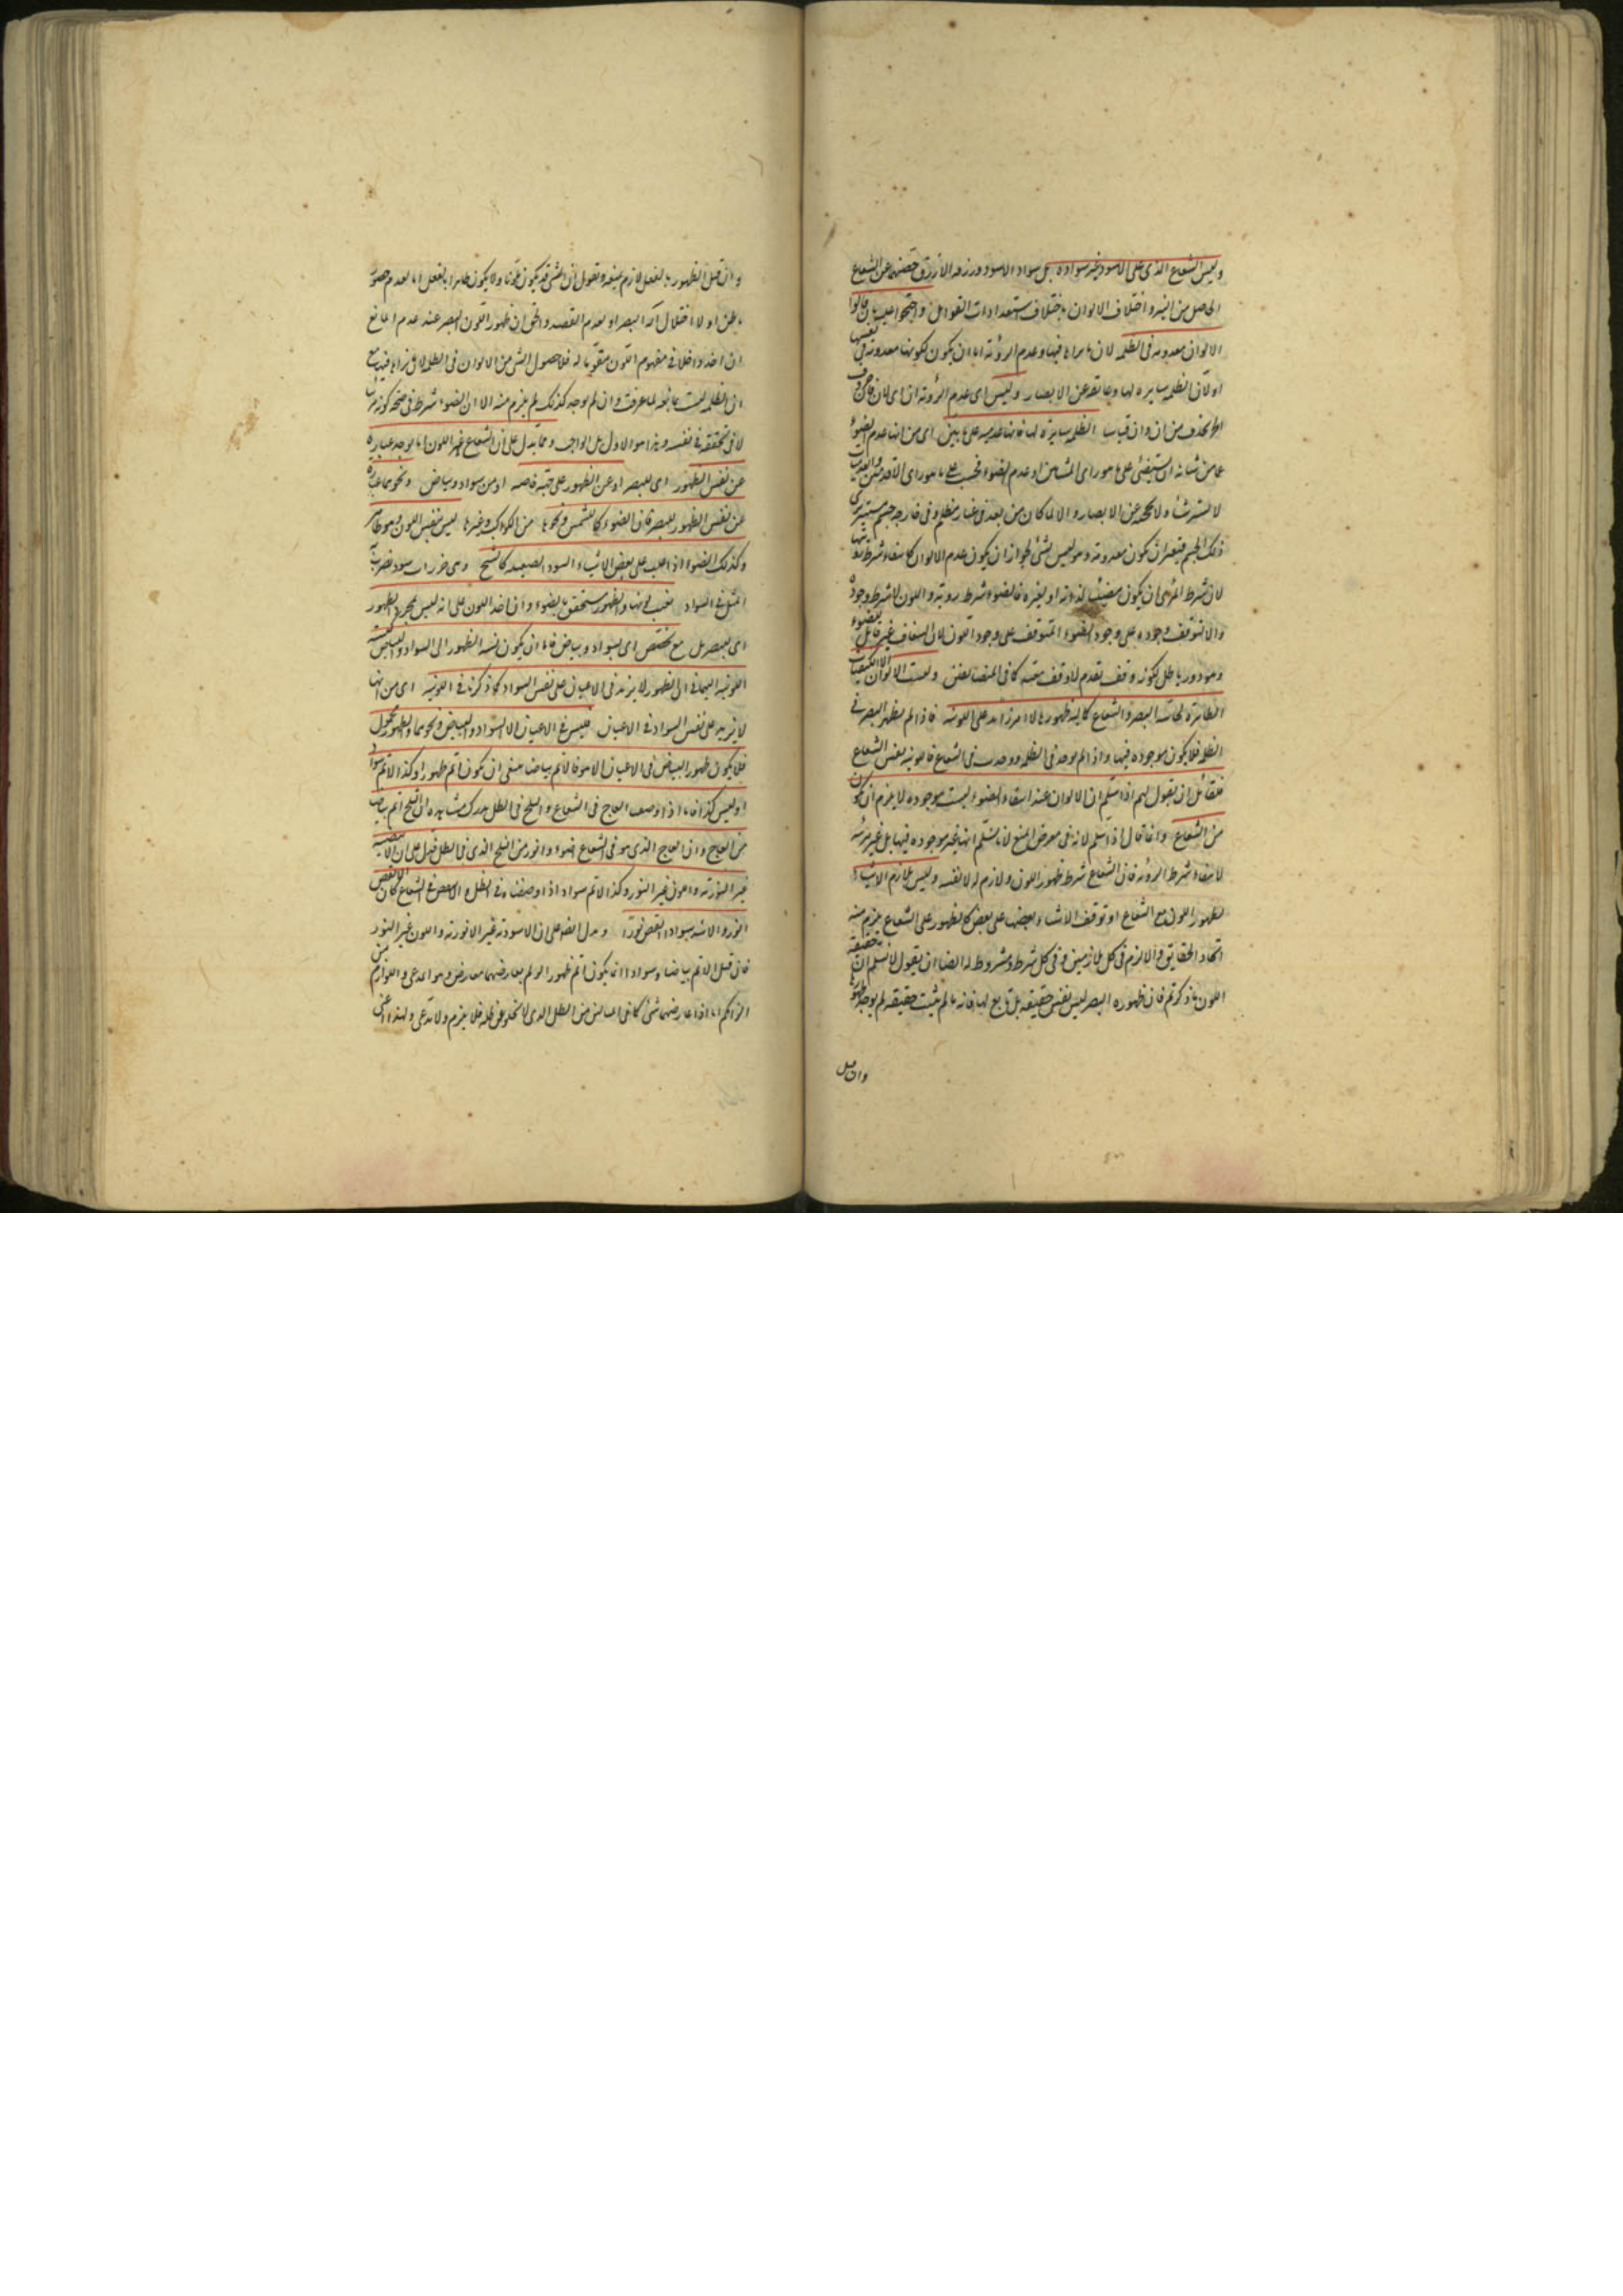 وليس الشعاع الذى على الاسود غير سواده بل سواد الاسود وزرقة الأزرق حصتهما عن الشعاع
الحاصل من النير واختلاف الالوان باختلاف استعدادات القوابل واحتجوا عليه بان قالوا
الالوان معدومة فى الظلمة لانا لا نراها فيها وعدم الرؤية اما ان يكون لكونها معدومة فى نفسها
او لان الظلمة ساترة لها وعائقة عن الابصار وليس اى عدم الرؤية
الظلمة ساترة لها فانها عدمية على ما بين اى من انها عدم الضوء
عما من شانه ان يستضئ على ما هو راى المشائين او عدم الضوء فحسب على ما هو راى الاقدمين
لا تستر شيئا ولا تحجب عن الابصار والا لما كان من بعد فى غار مظلم وفى خارجه جسم مستنير يرى
ذلك الجسم فتعين ان تكون معدومة وهو ليس بشئ لجواز ان يكون عدم الالوان كانتفاء شرط
لان شرط المرئى ان يكون مضيئا لذاته او لغيره فالضوء شرط رؤية اللون لا شرط وجوده
والا لتوقف وجوده على وجود الضوء المتوقف على وجود اللون لان الشفاف غير قابل للضوء
وهو دور باطل لكونه وقف تقدم لا وقف معية كما فى المتضايفين وليست الالوان الا الكيفيات
الظاهرة لحاسة البصر والشعاع كمالية ظهورها لا امر زائد على اللونية فاذا لم يظهر البصر فى
الظلمة فلا يكون موجودة فيها واذا لم يوجد فى الظلمة ووجدت فى الشعاع فاللونية نفس الشعاع
فلقائل ان يقول لهم اذا سلم ان الالوان عند انتفاء الضوء ليست موجودة لا يلزم ان يكون
من الشعاع وانما قال اذا سلم لانه فى معرض المنع لانا لا نسلم انها غير موجودة فيها بل غير مرئية
لانتفاء شرط الرؤية فان الشعاع شرط ظهور اللون ولازم له لا نفسه وليس تلازم الاشياء
كظهور اللون مع الشعاع او توقف الاشياء بعضها على بعض كالظهور على الشعاع يلزم منه
اتحاد الحقايق والا لزم فى كل متلازمين وفى كل شرط ومشروط له ايضا ان يقول لا نسلم ان حقيقة
اللون ما ذكرتم فان ظهوره للبصر ليس نفس حقيقته بل تابع لها فانه ما لم يثبت حقيقته لم يوجد ظهوره
وان قيل
وان قيل الظهور بالفعل لازم نمنعه ونقول ان الشئ قد يكون ملونا ولا يكون ظاهرا بالفعل اما لعدم حضور
باطن او لاختلال آلة البصر او لعدم القصد والحق ان ظهور اللون للبصر عند عدم المانع
ان اخذ داخلا فى مفهوم اللون مقوما له فلا حصول لشئ من الالوان فى الظلمة لانا لا نراها فيها مع
ان الظلمة ليست مانعة لما عرفت وان لم يوجد كذلك لم يلزم منه الا ان الضوء شرط فى صحة كونه مرئيا
لا فى تحققه فى نفسه وهذا هو الاول بل الواجب ومما يدل على ان الشعاع غير اللون
عن نفس الظهور اى للبصر او عن الظهور على جهة خاصة او من سواد وبياض ونحوهما
عن نفس الظهور للبصر فان الضوء كما للشمس ونحوها من الكواكب وغيرها ليس نفس اللون
وكذلك الضوء اذا غلب على بعض الاشياء السود الصقيلة كالشبح وهى خرزات سود
المثل فى السواد يغيب لونها والظهور متحقق بالضوء وان اخذ اللون على انه ليس مجرد الظهور
اى للبصر بل مع تخصص اى بسواد وبياض فاما ان يكون نسبة الظهور الى السواد والبياض كنسبة
اللونية اليهما فى ان الظهور لا يزيد فى الاعيان على نفس السواد كما ذكرنا فى اللونية اى من انها
لا تزيد على نفس السواد فى الاعيان فليس فى الاعيان الا السواد والبياض ونحوهما
فلا يكون ظهور البياض فى الاعيان الا هو فالاتم بياضا ينبغى ان يكون اتم ظهورا وكذا الاتم سوادا
وليس كذا فانا اذا وضعنا العاج فى الشعاع والثلج فى الظل ندرك مشاهدة ان الثلج اتم بياضا
من العاج وان العاج الذى هو فى الشعاع اضوء وانور من الثلج الذى فى الظل فدل على ان الابيضية
غير النورية واللون غير النور وكذا الاتم سوادا اذا وضعناه فى الظل والانقص فى الشعاع كان الانقص
انور والاشد سوادا انقص نورا ويدل ايضا على ان الاسودية غير الانورية واللون غير النور
فان قيل الاتم بياضا وسوادا انما يكون اتم ظهورا لو لم يعارضهما معارض